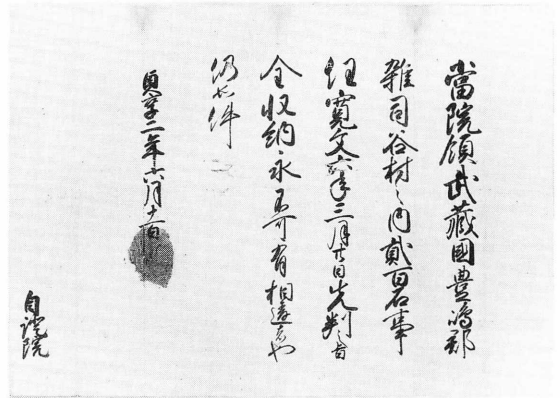 當院領武藏國豊嶋郡
雜司谷村之内貳百石事
任寛文六年三月廿日先判之旨
全収納永不可有相違者也
仍如件
貞享二年六月十一日
自證院